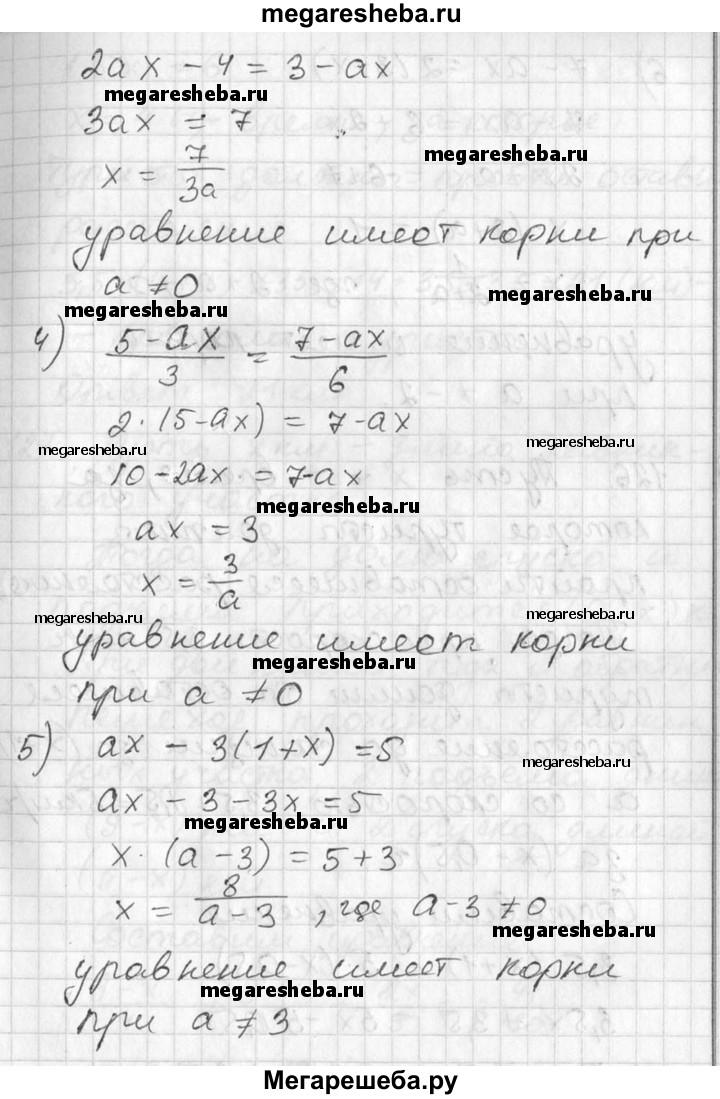 megaresheba.ru
2ax - 4 = 3 - ax
megaresheba.ru
3ax = 7
megaresheba.ru
x = 7/3a
megaresheba.ru
уравнение имеет корни при
a ≠ 0
megaresheba.ru
megaresheba.ru
4) (5-ax)/3 = (7-ax)/6
2·(5-ax) = 7-ax
megaresheba.ru
megaresheba.ru
10-2ax = 7-ax
megaresheba.ru
ax = 3
x = 3/a
megaresheba.ru
megaresheba.ru
уравнение имеет корни
megaresheba.ru
при a ≠ 0
5) ax - 3(1+x) = 5
megaresheba.ru
ax - 3 - 3x = 5
megaresheba.ru
x·(a-3) = 5+3
x = 8/(a-3), где a-3 ≠ 0
megaresheba.ru
уравнение имеет корни
megaresheba.ru
при a ≠ 3
Мегарешеба.ру